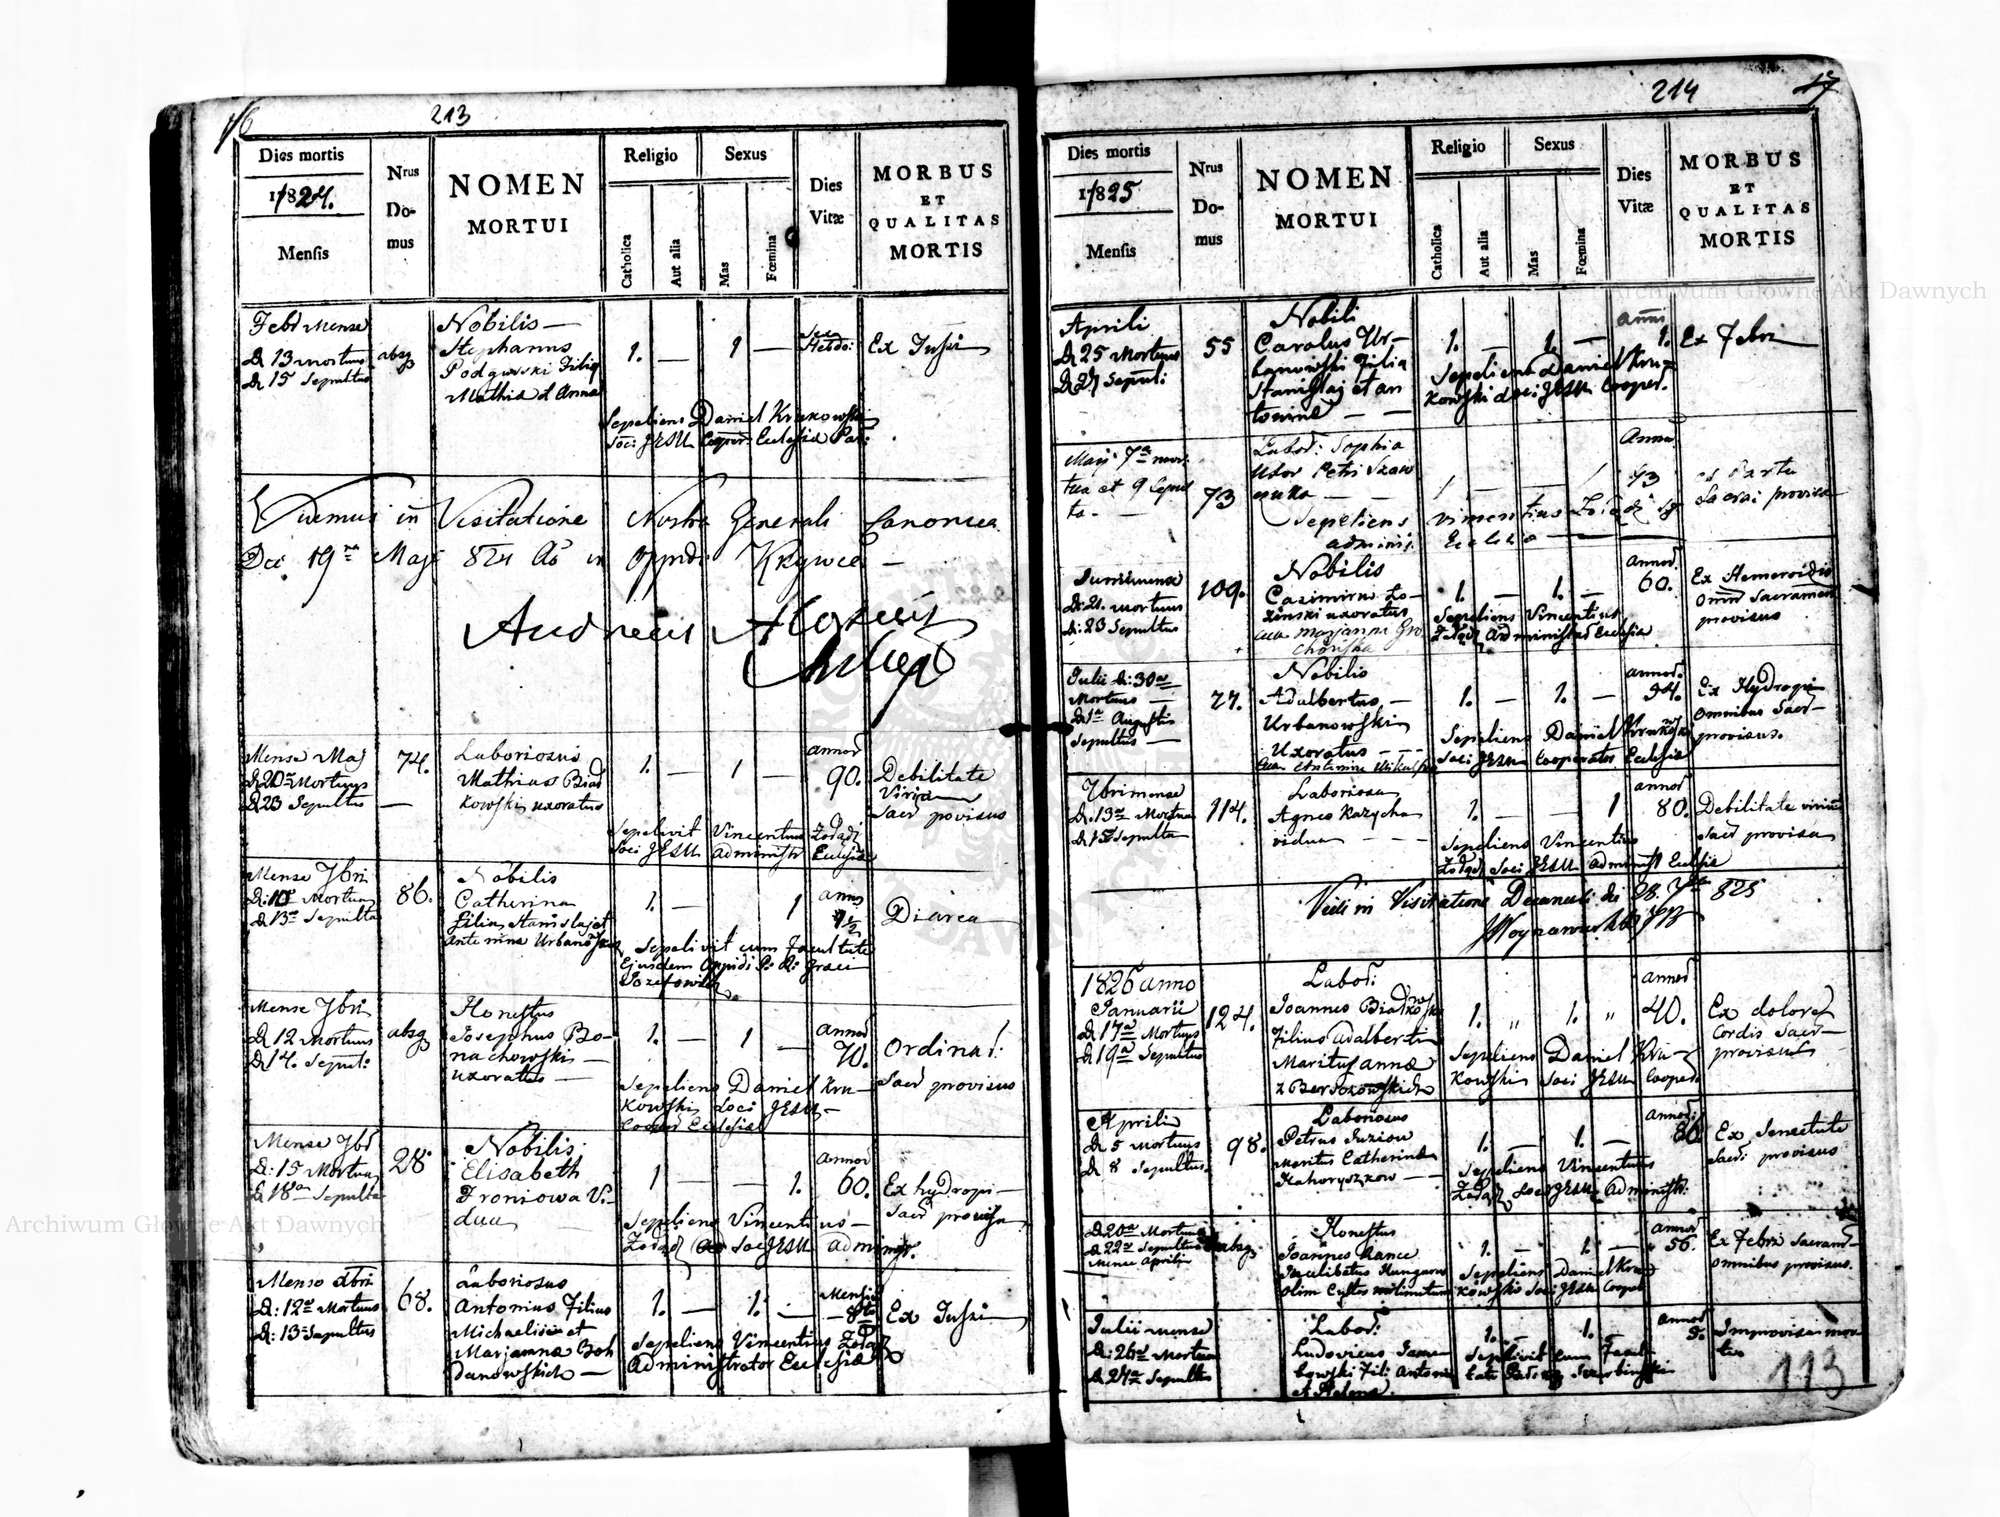 16
213
Dies mortis
1824.
Mensis
Nrus
Do-
mus
NOMEN
MORTUI
Religio
Catholica
Aut alia
Sexus
Mas
Fœmina
Dies
Vitæ
MORBUS
ET
QUALITAS
MORTIS
Febr Mense
d. 13 mortuus
d. 15 Sepultus
absq
Nobilis
Stephanus
Filiq
Mathia et Anna
1. — 1 —
Sex
Hebdo:
Ex Tussi
Sepeliens Daniel Krukowski
Soci JESU Cooper: Ecclesia Par:
Vidimus in Visitatione Nostra Generali Canonica
Die 19na Maji 824 Ao in Oppido Krzywcza —
Andreas
Mense Maj
d. 20 Mortuus
d. 23 Sepultus
74.
Laboriosus
Mathias Biad
kowski uxoratus
1. — 1 —
annor
90.
Debilitate
Viriu
Sacr provisus
Sepelivit Vincentius Zołądź
Soci JESU administr Ecclesia
Mense 7bri
d: 10 Mortua
d. 13a Sepulta
86.
Nobilis
Catherina
filia Stanislaj et
1. — 1
annor
1½
Diarea
Sepelivit cum facultate
Ejusdem Oppidi
Jozefowicz
Mense 7bri
d. 12 Mortuus
d. 14. Sepult:
absq
Honestus
Josephus Bo-
nachowski —
uxoratus —
1. — 1 —
annor
70.
Ordinar:
Sacr provisus
Sepeliens Daniel Kru-
kowski Soci JESU —
Cooper Ecclesia
Mense 7br
d: 15 Mortua
d. 18a Sepulta
28
Nobilis
Elisabeth
Froniowa Vi-
dua
1 — 1.
annor
60.
Ex hydropi —
Sacr provisa
Sepeliens Vincentius —
Zołądź Soc JESU administr.
Mense
d: 12a Mortuus
d: 13 Sepultus
68.
Laboriosus
Antonius Filius
Michaelis et
Marjanna Boh
danowskich —
1. — 1. —
Mensiu
8
Ex Tussi
Sepeliens Vincentius Zołądź
Administrator Ecclesia
214
17
Dies mortis
1825
Mensis
Nrus
Do-
mus
NOMEN
MORTUI
Religio
Catholica
Aut alia
Sexus
Mas
Fœmina
Dies
Vitæ
MORBUS
ET
QUALITAS
MORTIS
Aprili
d. 25 Mortuus
d. 27 Sepulti
55
Nobili
Carolus Ur-
banowski Filiu
Stanislaj et an
tonina — —
1. — 1. —
anni
1.
Ex Febri
Sepeliens Daniel Kru-
kowski soci JESU Cooper.
Maji 7a mor:
tua et 9 Sepul
ta. —
73
Labor: Sophia
Uxor Petri Szaw
1 — — 1
Annor
43
ex Partu
Sacrai provisa
Sepeliens Vincentius
administ. Ecclesia
Junii mense
d: 21. mortuus
d: 23 Sepultus
109.
Nobilis
Casimirus Lo-
zinski uxoratus
cum Marjanna Gro
chowska
1. — 1. —
Annor
60.
Ex Hemeroidis
Omni Sacramen
provisus
Sepeliens Vincentius
Zołądź administrat Ecclesia
Julii d: 30a
Mortuus —
d 1a Augustis
Sepultus —
27.
Nobilis
Adalbertus —
Urbanowski
Uxoratus — —
cum Antonina
1. — 1. —
annor.
94.
Ex Hydropi
Omnibus Sacr —
provisus.
Sepeliens Daniel Krukowski
Soci JESU Cooperator Ecclesia
7bri mense
d. 13a Mortua
d. 15 Sepulta
114.
Laboriosa
Agnes Kazycha
vidua —
1. — — 1
annor
80.
Debilitate viriu
Sacr provisa
Sepeliens Vincentius
Zołądź Soci JESU administ Ecclesia
Vidi in Visitatione Decanali die 28. 7bris 825
1826 anno
Januarii
d 17a Mortuus
d: 19a Sepultus
124.
Labor:
Joannes Biadkowski
Filius Adalberti
Maritus Anna
1. „ 1. „
annor
40.
Ex dolore
Cordis Sacr —
provisus
Sepeliens Daniel Kru-
kowski Soci JESU Cooper.
Aprili
d. 5 Mortuus
d 8 Sepultus
98.
Laboriosus
Petrus
Maritus Catherina
1. — 1. —
annor
80.
Ex Senectute
Sacr: provisus
Sepeliens Vincentius
Zołądź Soci JESU administr.
d. 20a Mortuus
d. 22a Sepultus
Mense Aprilis
absq.
Honestus
Joannes
Incelibatus Hungarus
olim
1. — 1. —
annor
56.
Ex Febri Sacram —
omnibus provisus.
Sepeliens Daniel Kru
kowski Soci JESU Cooper
Julii mense
d: 26a Mortuus
d. 27a Sepultus
Labor:
Ludovicus
Fili Antoni
et Helena.
1. — 1. —
annor
Improvisa mor
tis
Sepelivit cum Facul
tate
113
Archiwum Główne Akt Dawnych
Archiwum Główne Akt Dawnych